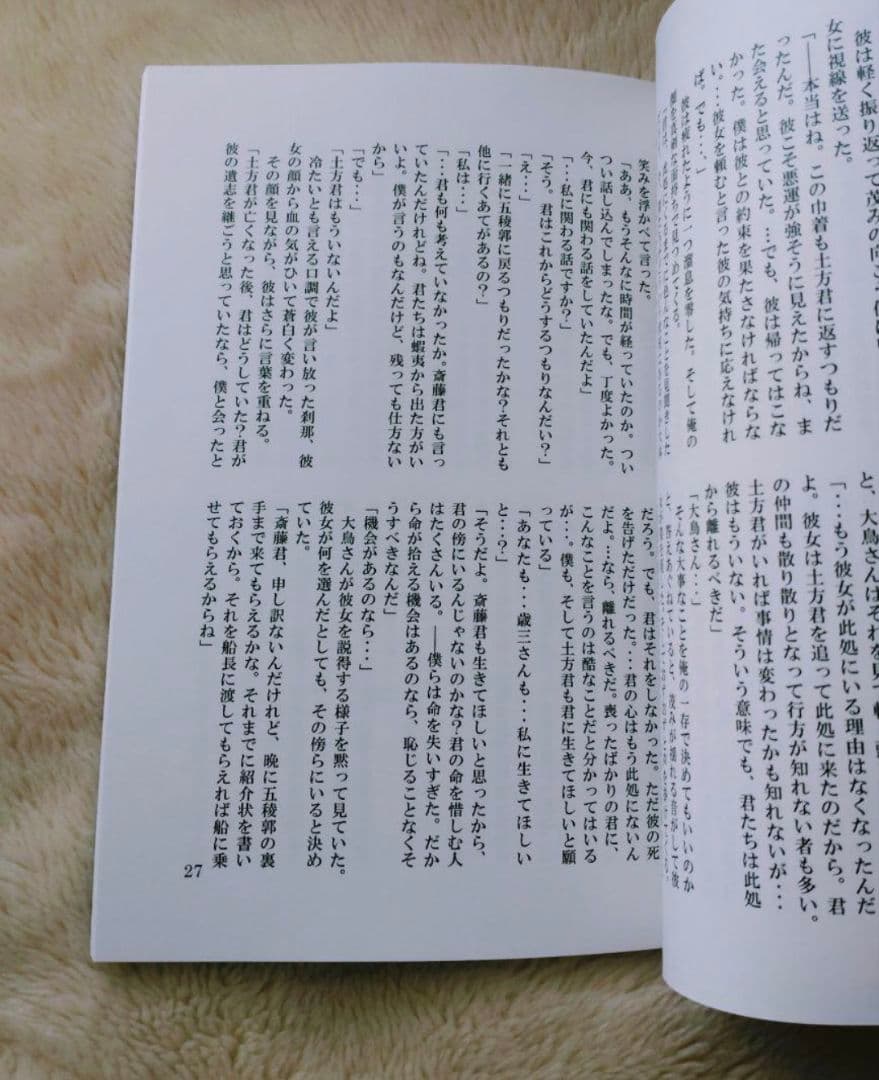 彼は軽く振り返って茂みの向こ
女に視線を送った。
「――本当はね。この巾着も土方君に返すつもりだ
ったんだ。彼こそ悪運が強そうに見えたからね、ま
た会えると思っていた。…でも、彼は帰ってはこな
かった。僕は彼との約束を果たさなければならな
い。・・・彼女を頼むと言った彼の気持ちに応えなけれ
ば。でも・・・」
彼は疲れたように一つ溜息を零した。そして俺の
顔を真摯な面持ちで見つめてくる。
と、大鳥さんはそれを見て
「・・・もう彼女が此処にいる理由はなくなったんだ
よ。彼女は土方君を追って此処に来たのだから。君
の仲間も散り散りとなって行方が知れない者も多い。
土方君がいれば事情は変わったかも知れないが・・・
彼はもういない。そういう意味でも、君たちは此処
から離れるべきだ」
「大鳥さん・・・」
そんな大事なことを俺の一存で決めてもいいのか
と、答えあぐねていると、茂みが揺れる音がして彼
笑みを浮かべて言った。
「ああ、もうそんなに時間が経っていたのか。つい
つい話し込んでしまったな。でも、丁度よかった。
今、君にも関わる話をしていたんだよ」
「・・・私に関わる話ですか？」
「そう。君はこれからどうするつもりなんだい？」
「え・・・」
「一緒に五稜郭に戻るつもりだったかな？それとも
他に行くあてがあるの？」
「私は・・・」
「・・・君も何も考えていなかったか。斎藤君にも言っ
ていたんだけれどね。君たちは蝦夷から出た方がい
いよ。僕が言うのもなんだけど、残っても仕方ない
から」
「でも・・・」
「土方君はもういないんだよ」
冷たいとも言える口調で彼が言い放った刹那、彼
女の顔から血の気がひいて蒼白く変わった。
その顔を見ながら、彼はさらに言葉を重ねる。
「土方君が亡くなった後、君はどうしていた？君が
彼の遺志を継ごうと思っていたなら、僕と会ったと
だろう。でも、君はそれをしなかった。ただ彼の死
を告げただけだった。・・・君の心はもう此処にないん
だよ。・・・なら、離れるべきだ。喪ったばかりの君に、
こんなことを言うのは酷なことだと分かってはいる
が・・・。僕も、そして土方君も君に生きてほしいと願
っている」
「あなたも・・・歳三さんも・・・私に生きてほしい
と・・・？」
「そうだよ。斎藤君も生きてほしいと思ったから、
君の傍にいるんじゃないのかな？君の命を惜しむ人
はたくさんいる。――僕らは命を失いすぎた。だか
ら命が拾える機会はあるのなら、恥じることなくそ
うすべきなんだ」
「機会があるのなら・・・」
大鳥さんが彼女を説得する様子を黙って見ていた。
彼女が何を選んだとしても、その傍らにいると決め
ていた。
「斎藤君、申し訳ないんだけれど、晩に五稜郭の裏
手まで来てもらえるかな。それまでに紹介状を書い
ておくから。それを船長に渡してもらえれば船に乗
せてもらえるからね」
27